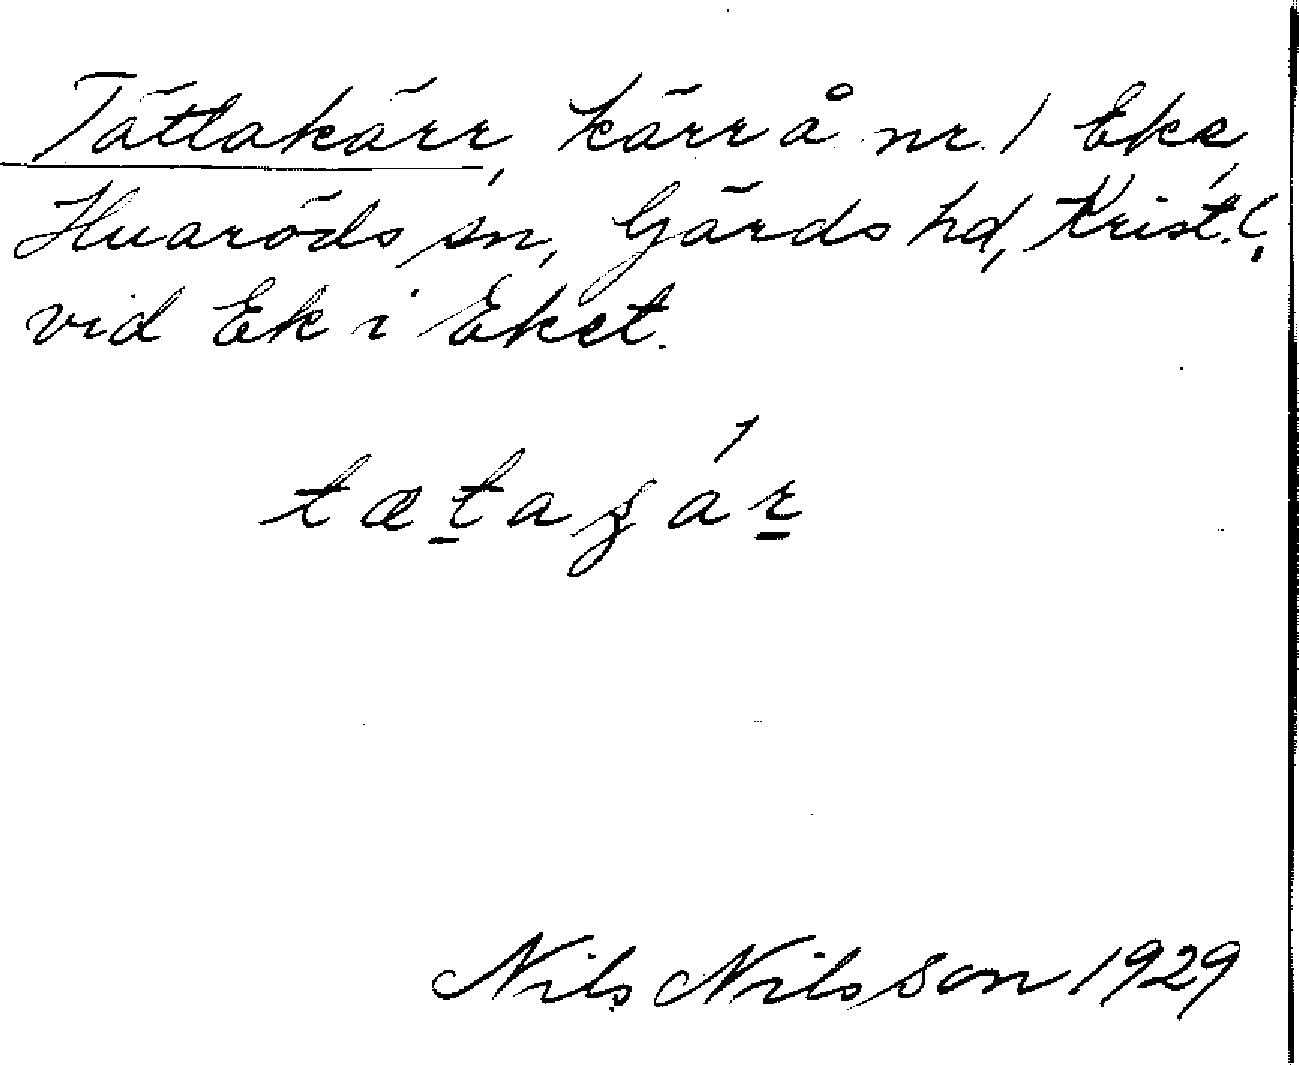 Tättakärr, kärr å nr. 1 Eke,
Huaröds sn, Gärds hd, Krist. L.
vid Ek i Eket.
tætagár
Nils Nilsson 1929